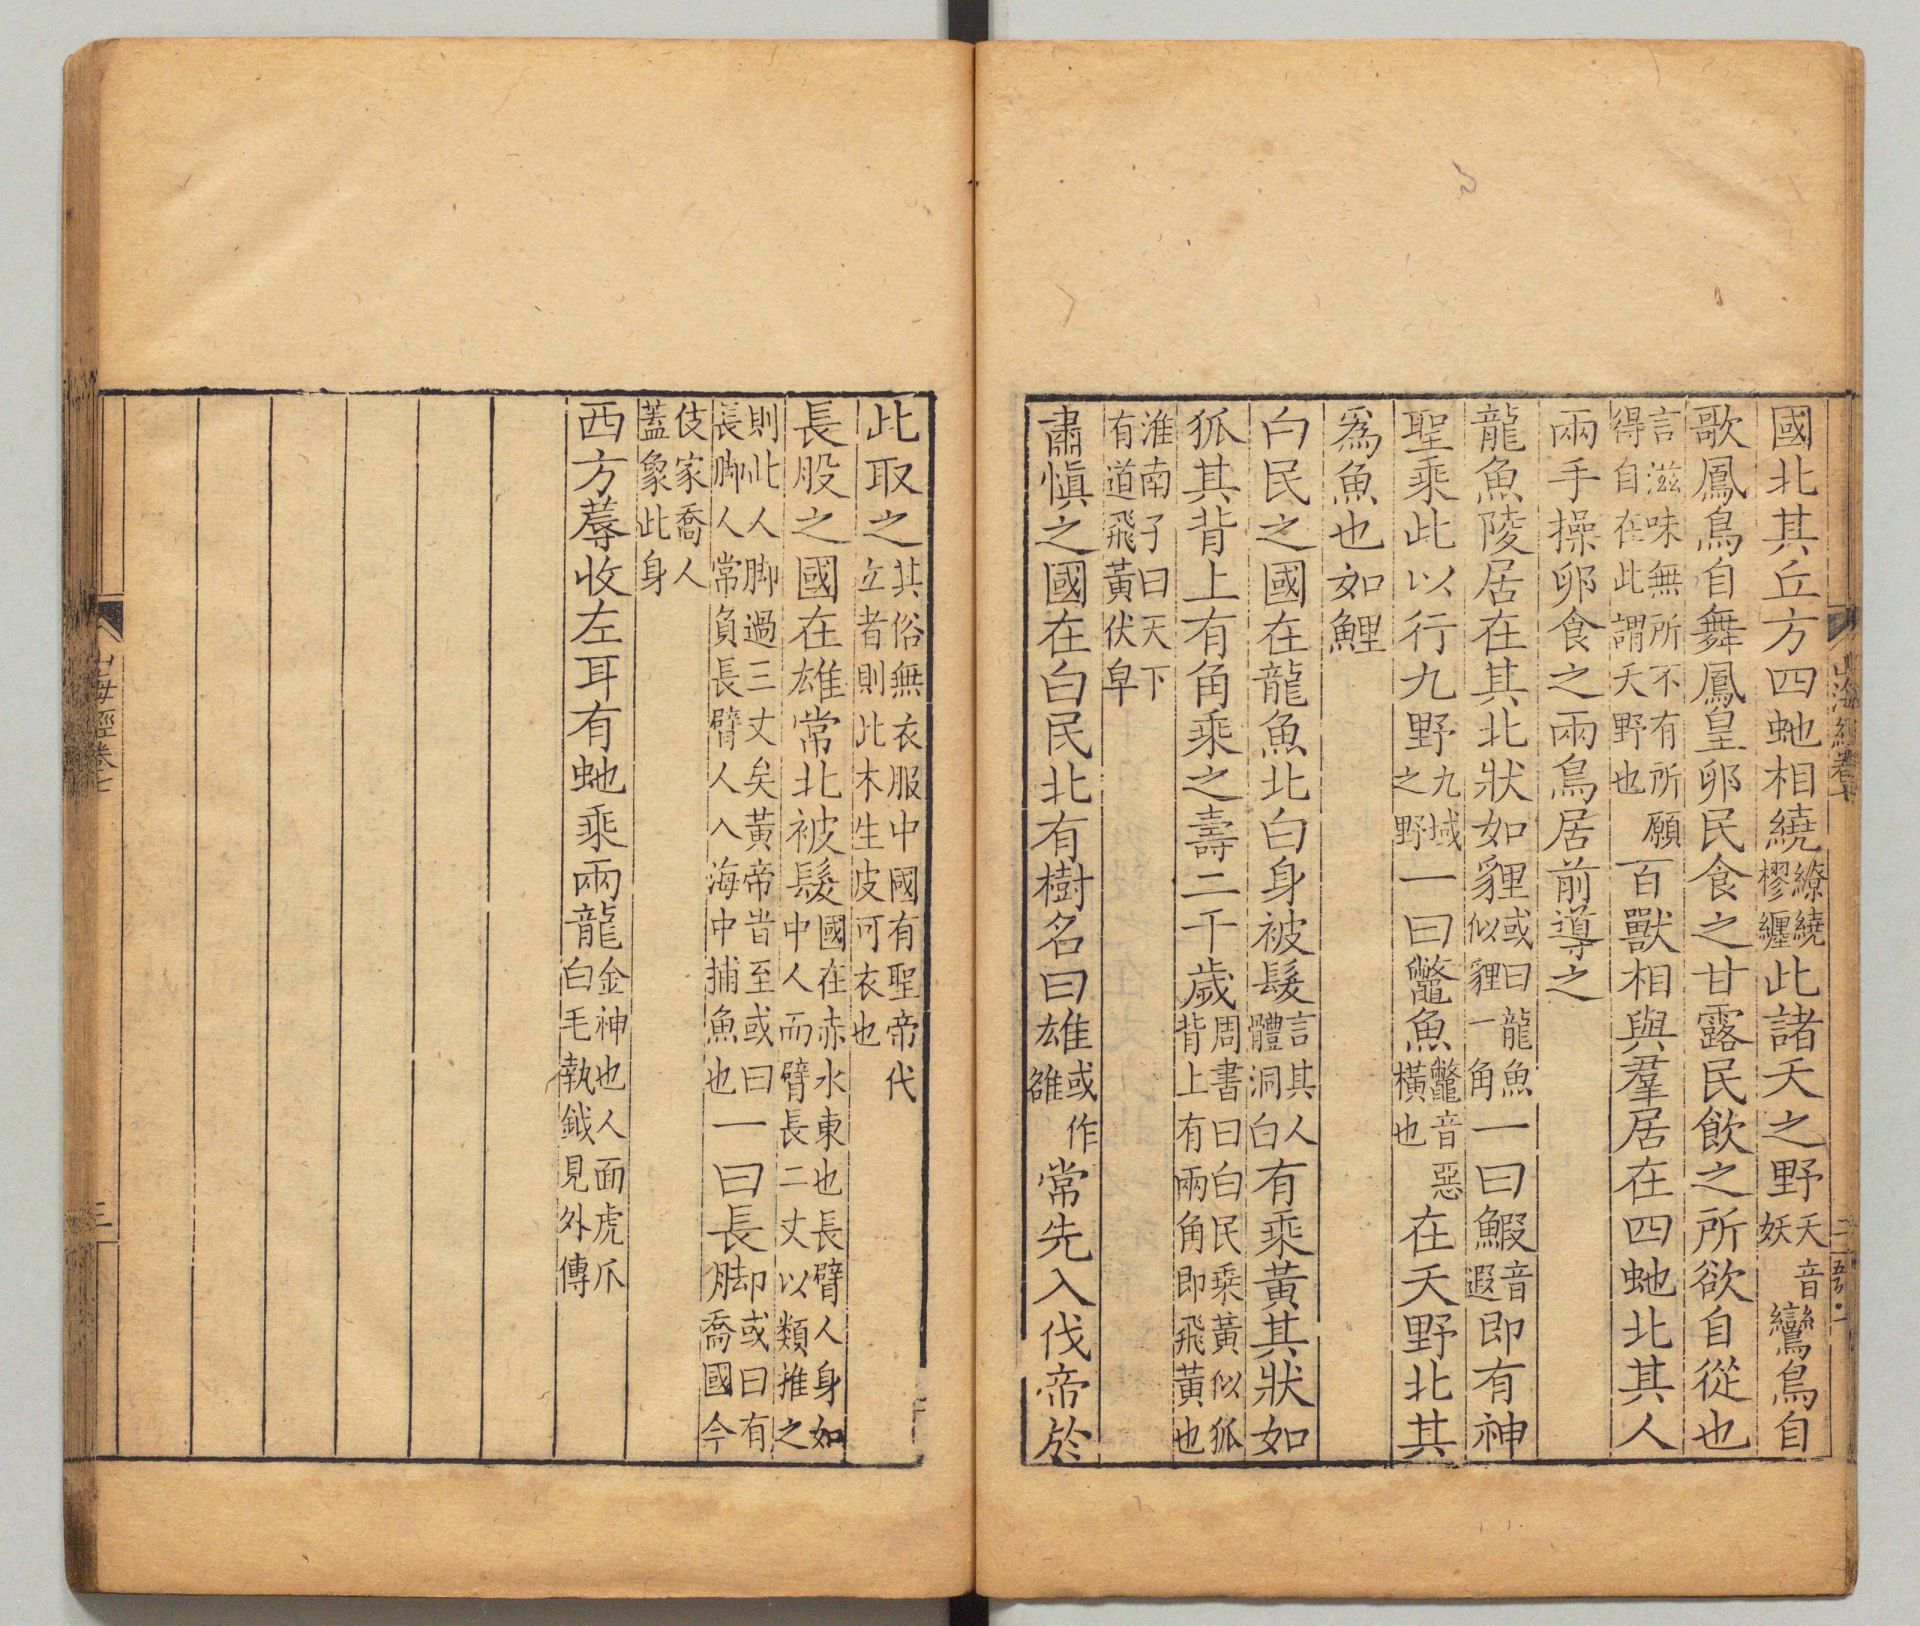 山海經卷七 二
國北其丘方四虵相繞繚繞樛纏此諸夭之野夭音妖鸞鳥自
歌鳳鳥自舞鳳皇卵民食之甘露民飲之所欲自從也
言滋味無所不有所願得自在此謂夭野也百獸相與羣居在四虵北其人
兩手操卵食之兩鳥居前導之
龍魚陵居在其北狀如貍或曰龍魚似貍一角一曰鰕音遐即有神
聖乘此以行九野九域之野一曰鼈魚鼈音惡橫也在夭野北其
爲魚也如鯉
白民之國在龍魚北白身被髮言其人體洞白有乘黃其狀如
狐其背上有角乘之壽二千歲周書曰白民乘黃似狐背上有兩角即飛黃也
淮南子曰天下有道飛黃伏皁
肅慎之國在白民北有樹名曰雄或作雒常先入伐帝於
此取之其俗無衣服中國有聖帝代立者則此木生皮可衣也
長股之國在雄常北被髮國在赤水東也長臂人身如中人而臂長二丈以類推之
則此人脚過三丈矣黃帝時至或曰長脚人常負長臂人入海中捕魚也一曰長脚或曰有喬國今
伎家喬人蓋象此身
西方蓐收左耳有虵乘兩龍金神也人面虎爪白毛執鉞見外傳
山海經卷七 三